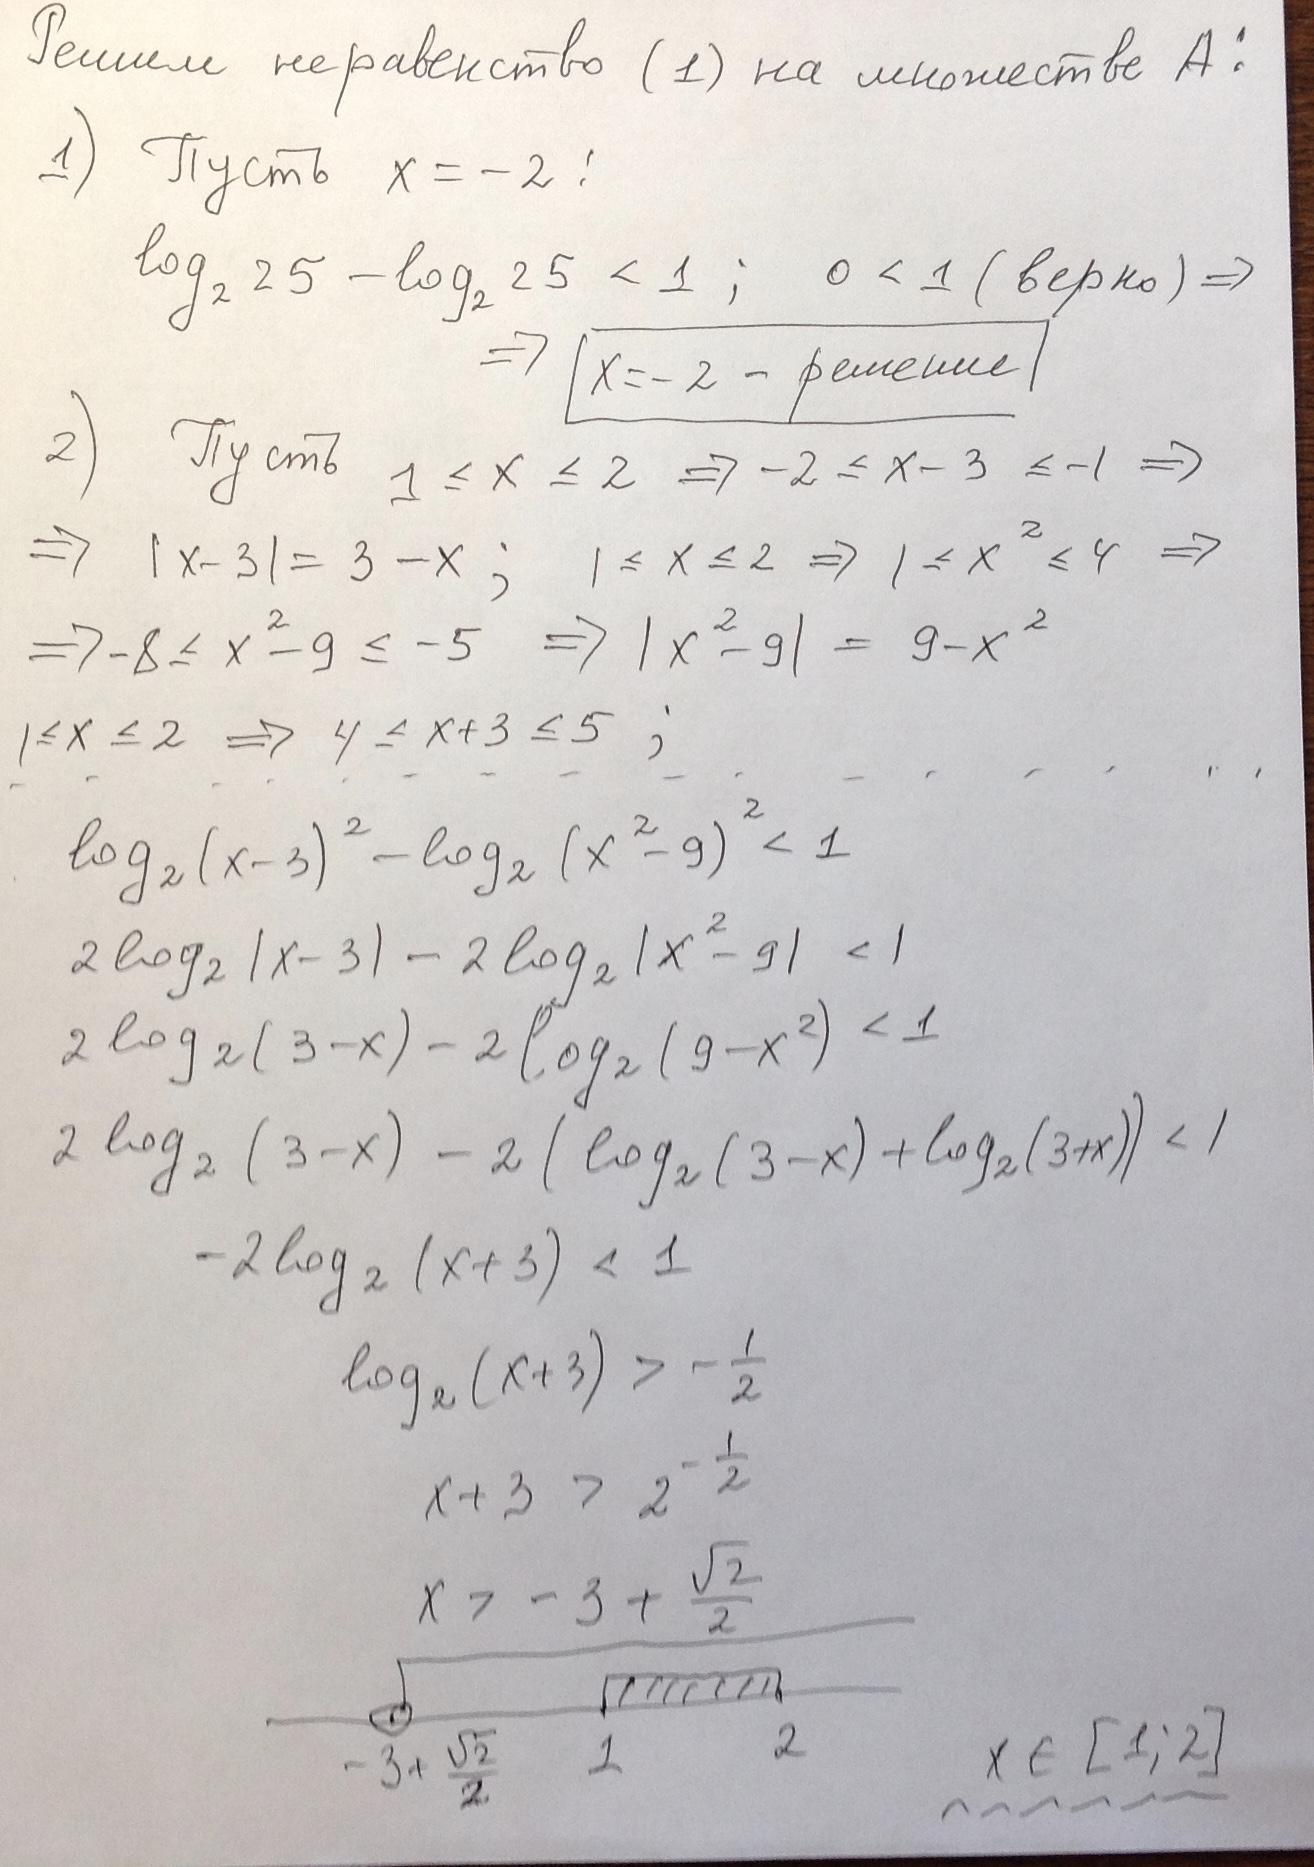 Решим неравенство (1) на множестве A:
1) Пусть x = -2:
log₂ 25 - log₂ 25 < 1; 0 < 1 (верно) ⇒
⇒ x = -2 - решение
2) Пусть 1 ≤ x ≤ 2 ⇒ -2 ≤ x - 3 ≤ -1 ⇒
⇒ |x - 3| = 3 - x; 1 ≤ x ≤ 2 ⇒ 1 ≤ x² ≤ 4 ⇒
⇒ -8 ≤ x² - 9 ≤ -5 ⇒ |x² - 9| = 9 - x²
1 ≤ x ≤ 2 ⇒ 4 ≤ x + 3 ≤ 5;
log₂(x - 3)² - log₂(x² - 9)² < 1
2 log₂|x - 3| - 2 log₂|x² - 9| < 1
2 log₂(3 - x) - 2 log₂(9 - x²) < 1
2 log₂(3 - x) - 2(log₂(3 - x) + log₂(3 + x)) < 1
-2 log₂(x + 3) < 1
log₂(x + 3) > -1/2
x + 3 > 2^(-1/2)
x > -3 + √2/2
-3 + √2/2 1 2 x ∈ [1; 2]